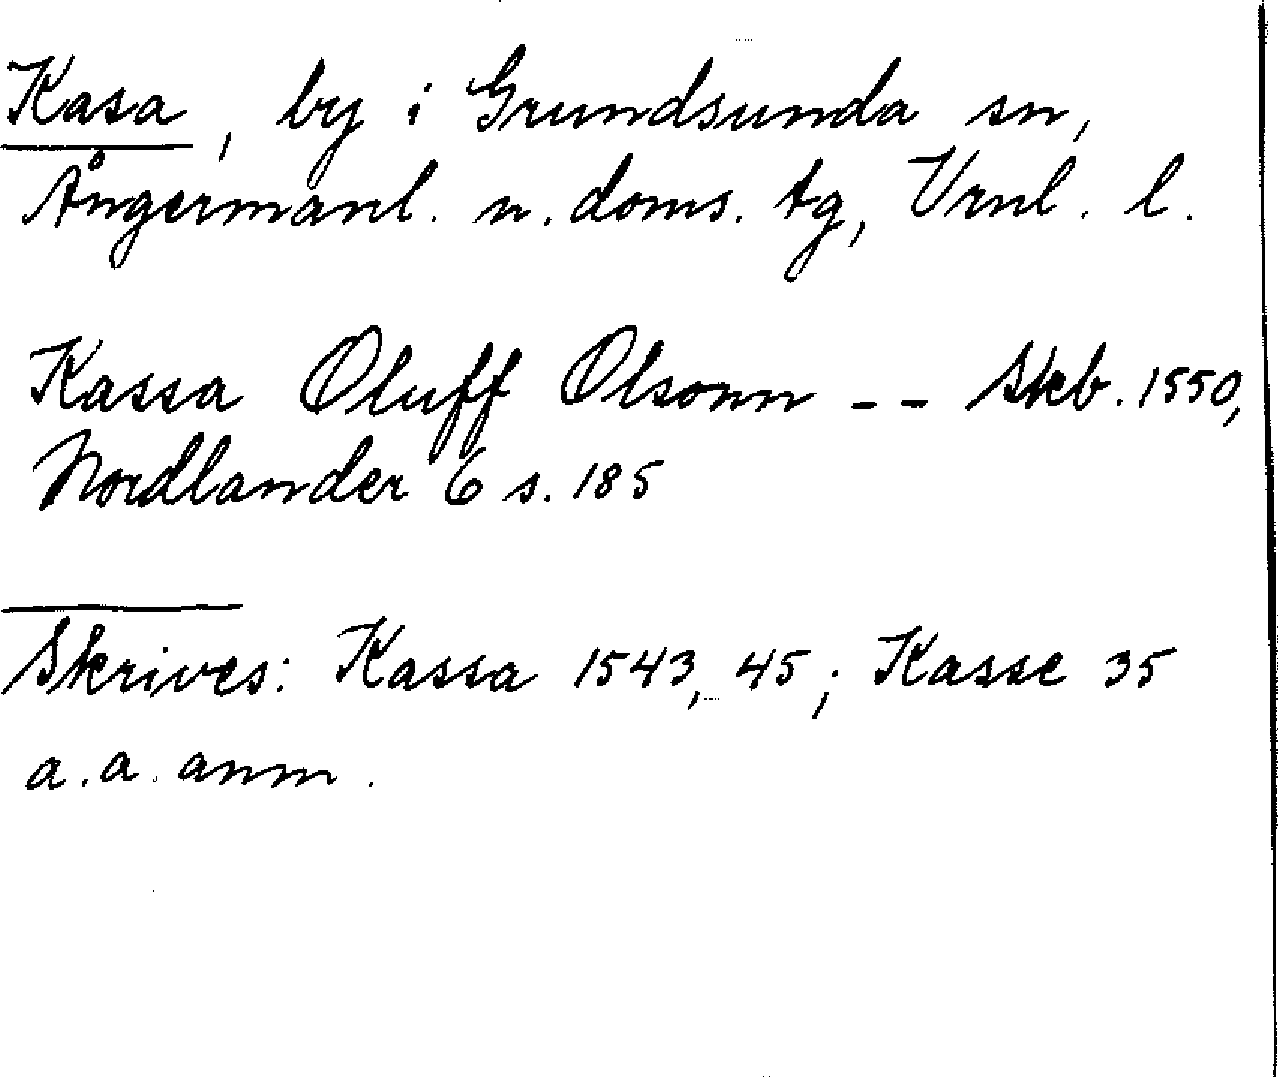 Kasa, by i Grundsunda sn,
Ångermanl. n. doms. tg, Vrnl. l.
Kassa Oluff Olsonn -- Skb. 1550,
Nordlander 6 s. 185
Skrives: Kassa 1543, 45; Kasse 35
a. a. anm.